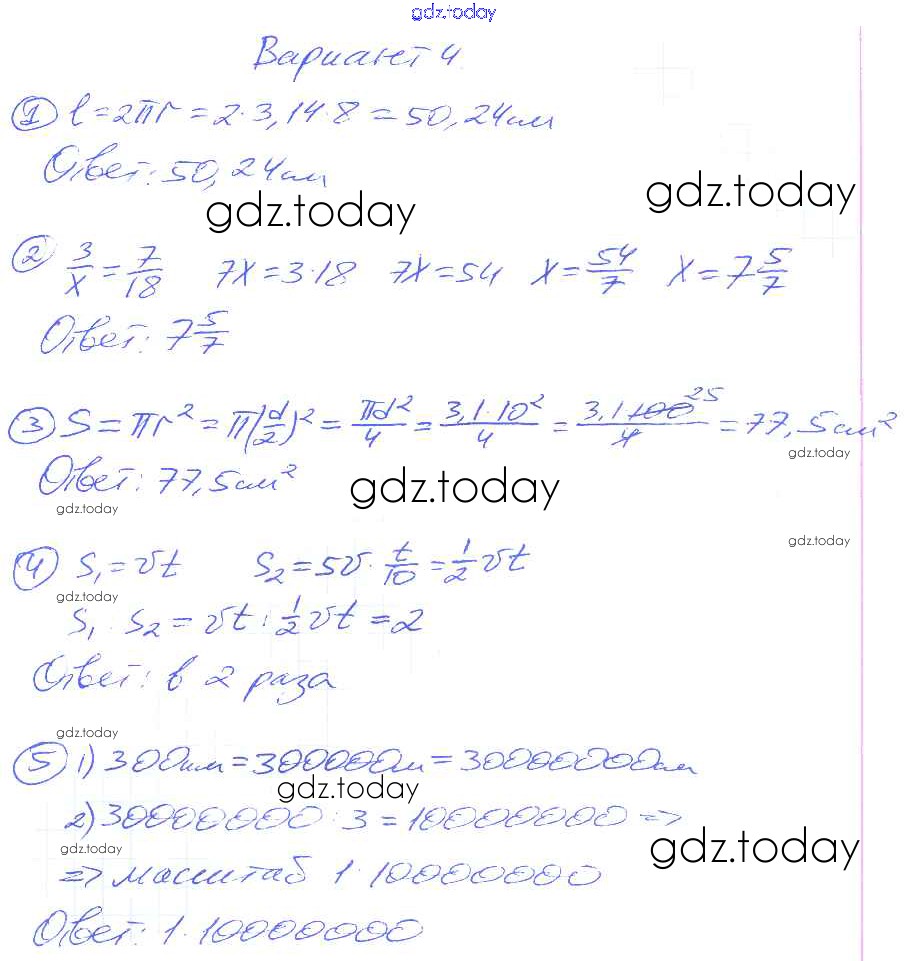 gdz.today
Вариант 4
① l=2πr=2·3,14·8=50,24см
Ответ: 50,24см
gdz.today gdz.today
② 3/x = 7/18 7x=3·18 7x=54 x=54/7 x=7 5/7
Ответ: 7 5/7
③ S=πr²=π(d/2)²=πd²/4=3,1·10²/4=3,1·100 25/4=77,5см²
gdz.today
Ответ: 77,5см²
gdz.today
gdz.today
gdz.today
④ S₁=vt S₂=5v·t/10=1/2vt
gdz.today
S₁:S₂=vt:1/2vt=2
Ответ: в 2 раза
gdz.today
⑤ 1) 300км=300000м=30000000см
gdz.today
2) 30000000:3=10000000 =>
gdz.today
gdz.today
=> масштаб 1:10000000
Ответ: 1:10000000